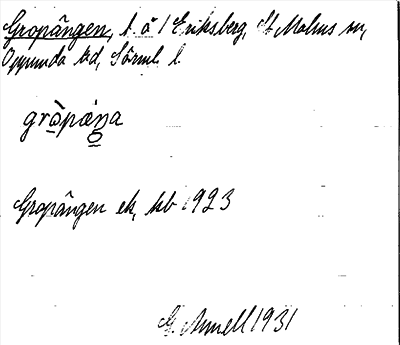 Gropängen, t. å / Eriksberg, St Malms sn,
Oppunda hd, Sörml. l.
gròpæŋa
Gropängen ek, kb 1923
G. Amell 1931